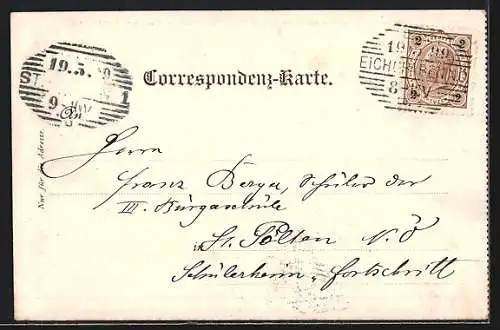 19.5.99
ST
9
1
Correspondenz-Karte.
19 5 99
EICH
8 V
2 2
2 2
Nur für die Adresse.
Herrn
Franz Berger, Schüler der
III. Bürgerschule
in St. Pölten N. Ö
Schülerheim „Fortschritt